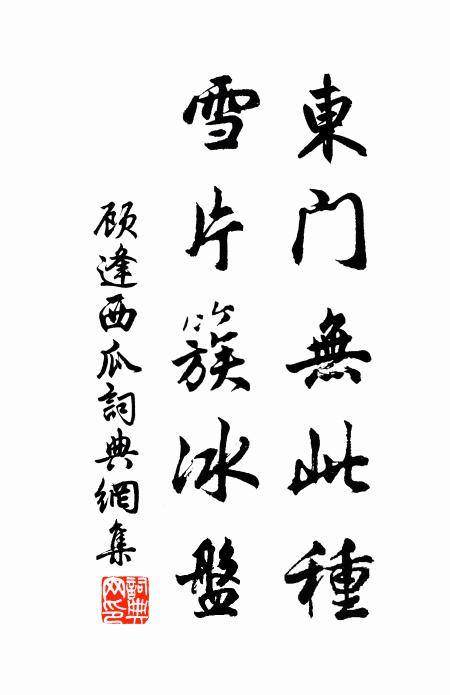 東门無此種
雪片簇冰盤
顾逢西瓜詞典網集
詞典网印